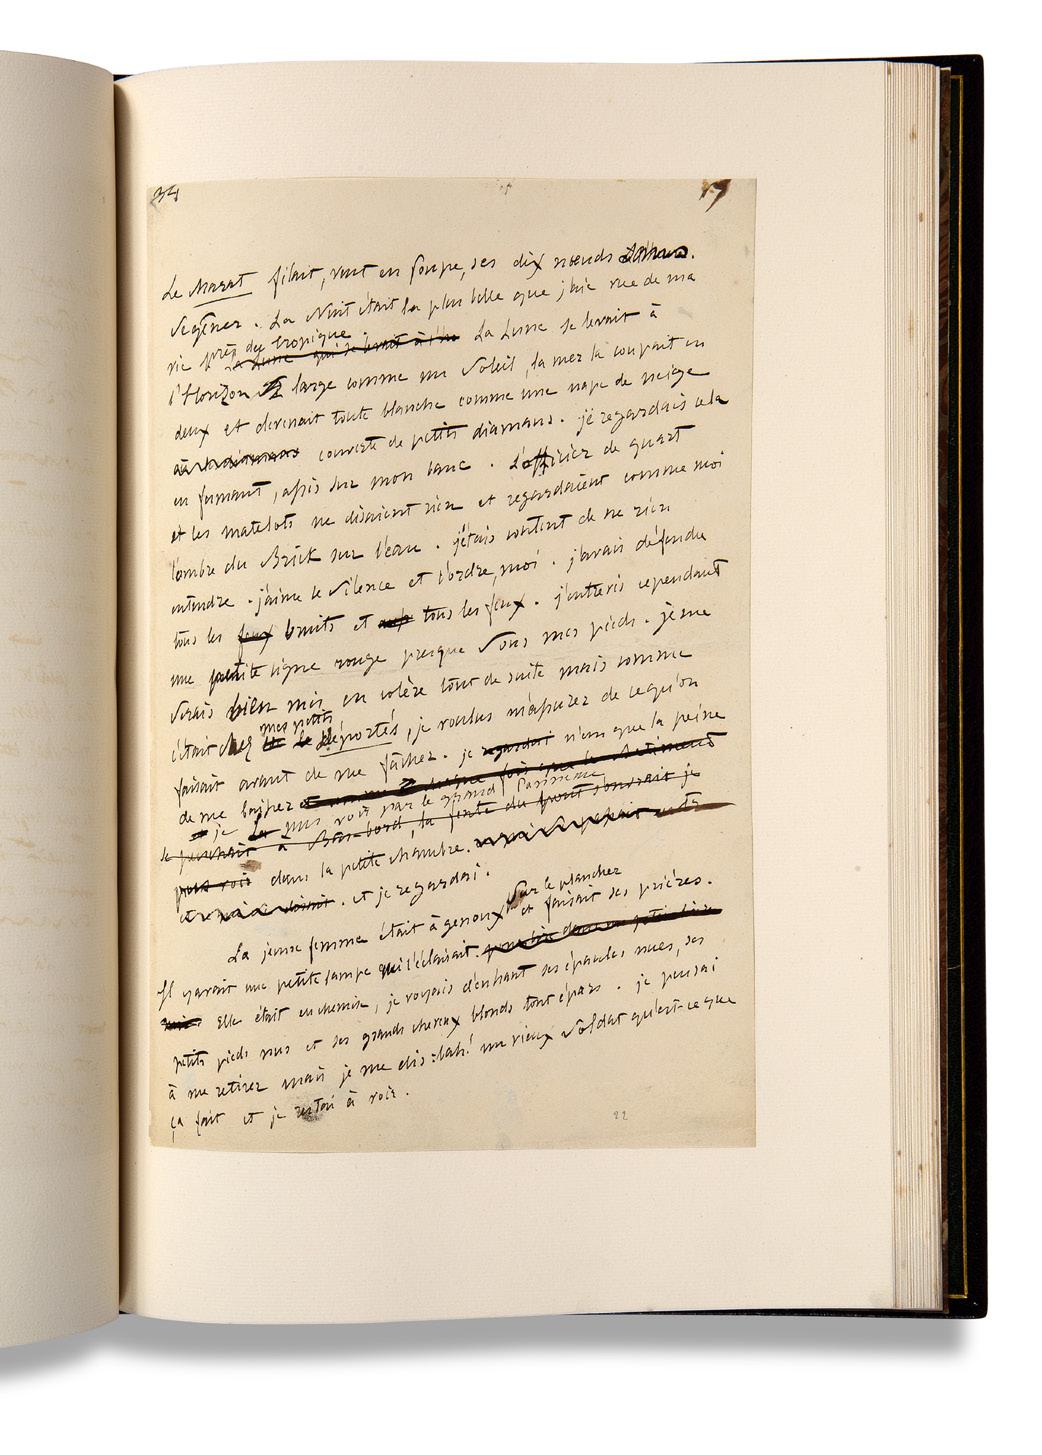 34
17
Le Marat filait, vent en poupe, ses dix nœuds
La Nuit était la plus belle que j'aie vue de ma
vie près du tropique La Lune se levait à
l'Horizon large comme un Soleil, la mer la coupait en
deux et devenait toute blanche comme une nape de neige
couverte de petits diamans. je regardais cela
en fumant, assis sur mon banc. L'officier de quart
et les matelots ne disaient rien et regardaient comme moi
l'ombre du Brick sur l'eau. j'étais content de ne rien
entendre. j'aime le Silence et l'ordre, moi. j'avais défendu
tous les feux bruits et tous les feux. j'entrevis cependant
une petite ligne rouge presque Sous mes pieds. je me
Serais bien mis en colère tout de suite mais comme
c'était chez mes petits Déportés, je voulus m'assurer de ce qu'on
faisait avant de me fâcher. je regardai n'eus que la peine
de me baisser
je pus voir par le grand
à Bas-bord, la fente du pont
dans la petite chambre.
et je regardai.
Sur le plancher
La jeune femme était à genoux et faisait ses prières.
Il y avait une petite lampe qui l'éclairait.
Elle était en chemise, je voyais d'en haut ses épaules nues, ses
petits pieds nus et ses grands cheveux blonds tout épars. je pensai
à me retirer mais je me dis : bah! un vieux Soldat qu'est-ce que
ça fait et je restai à voir.
22